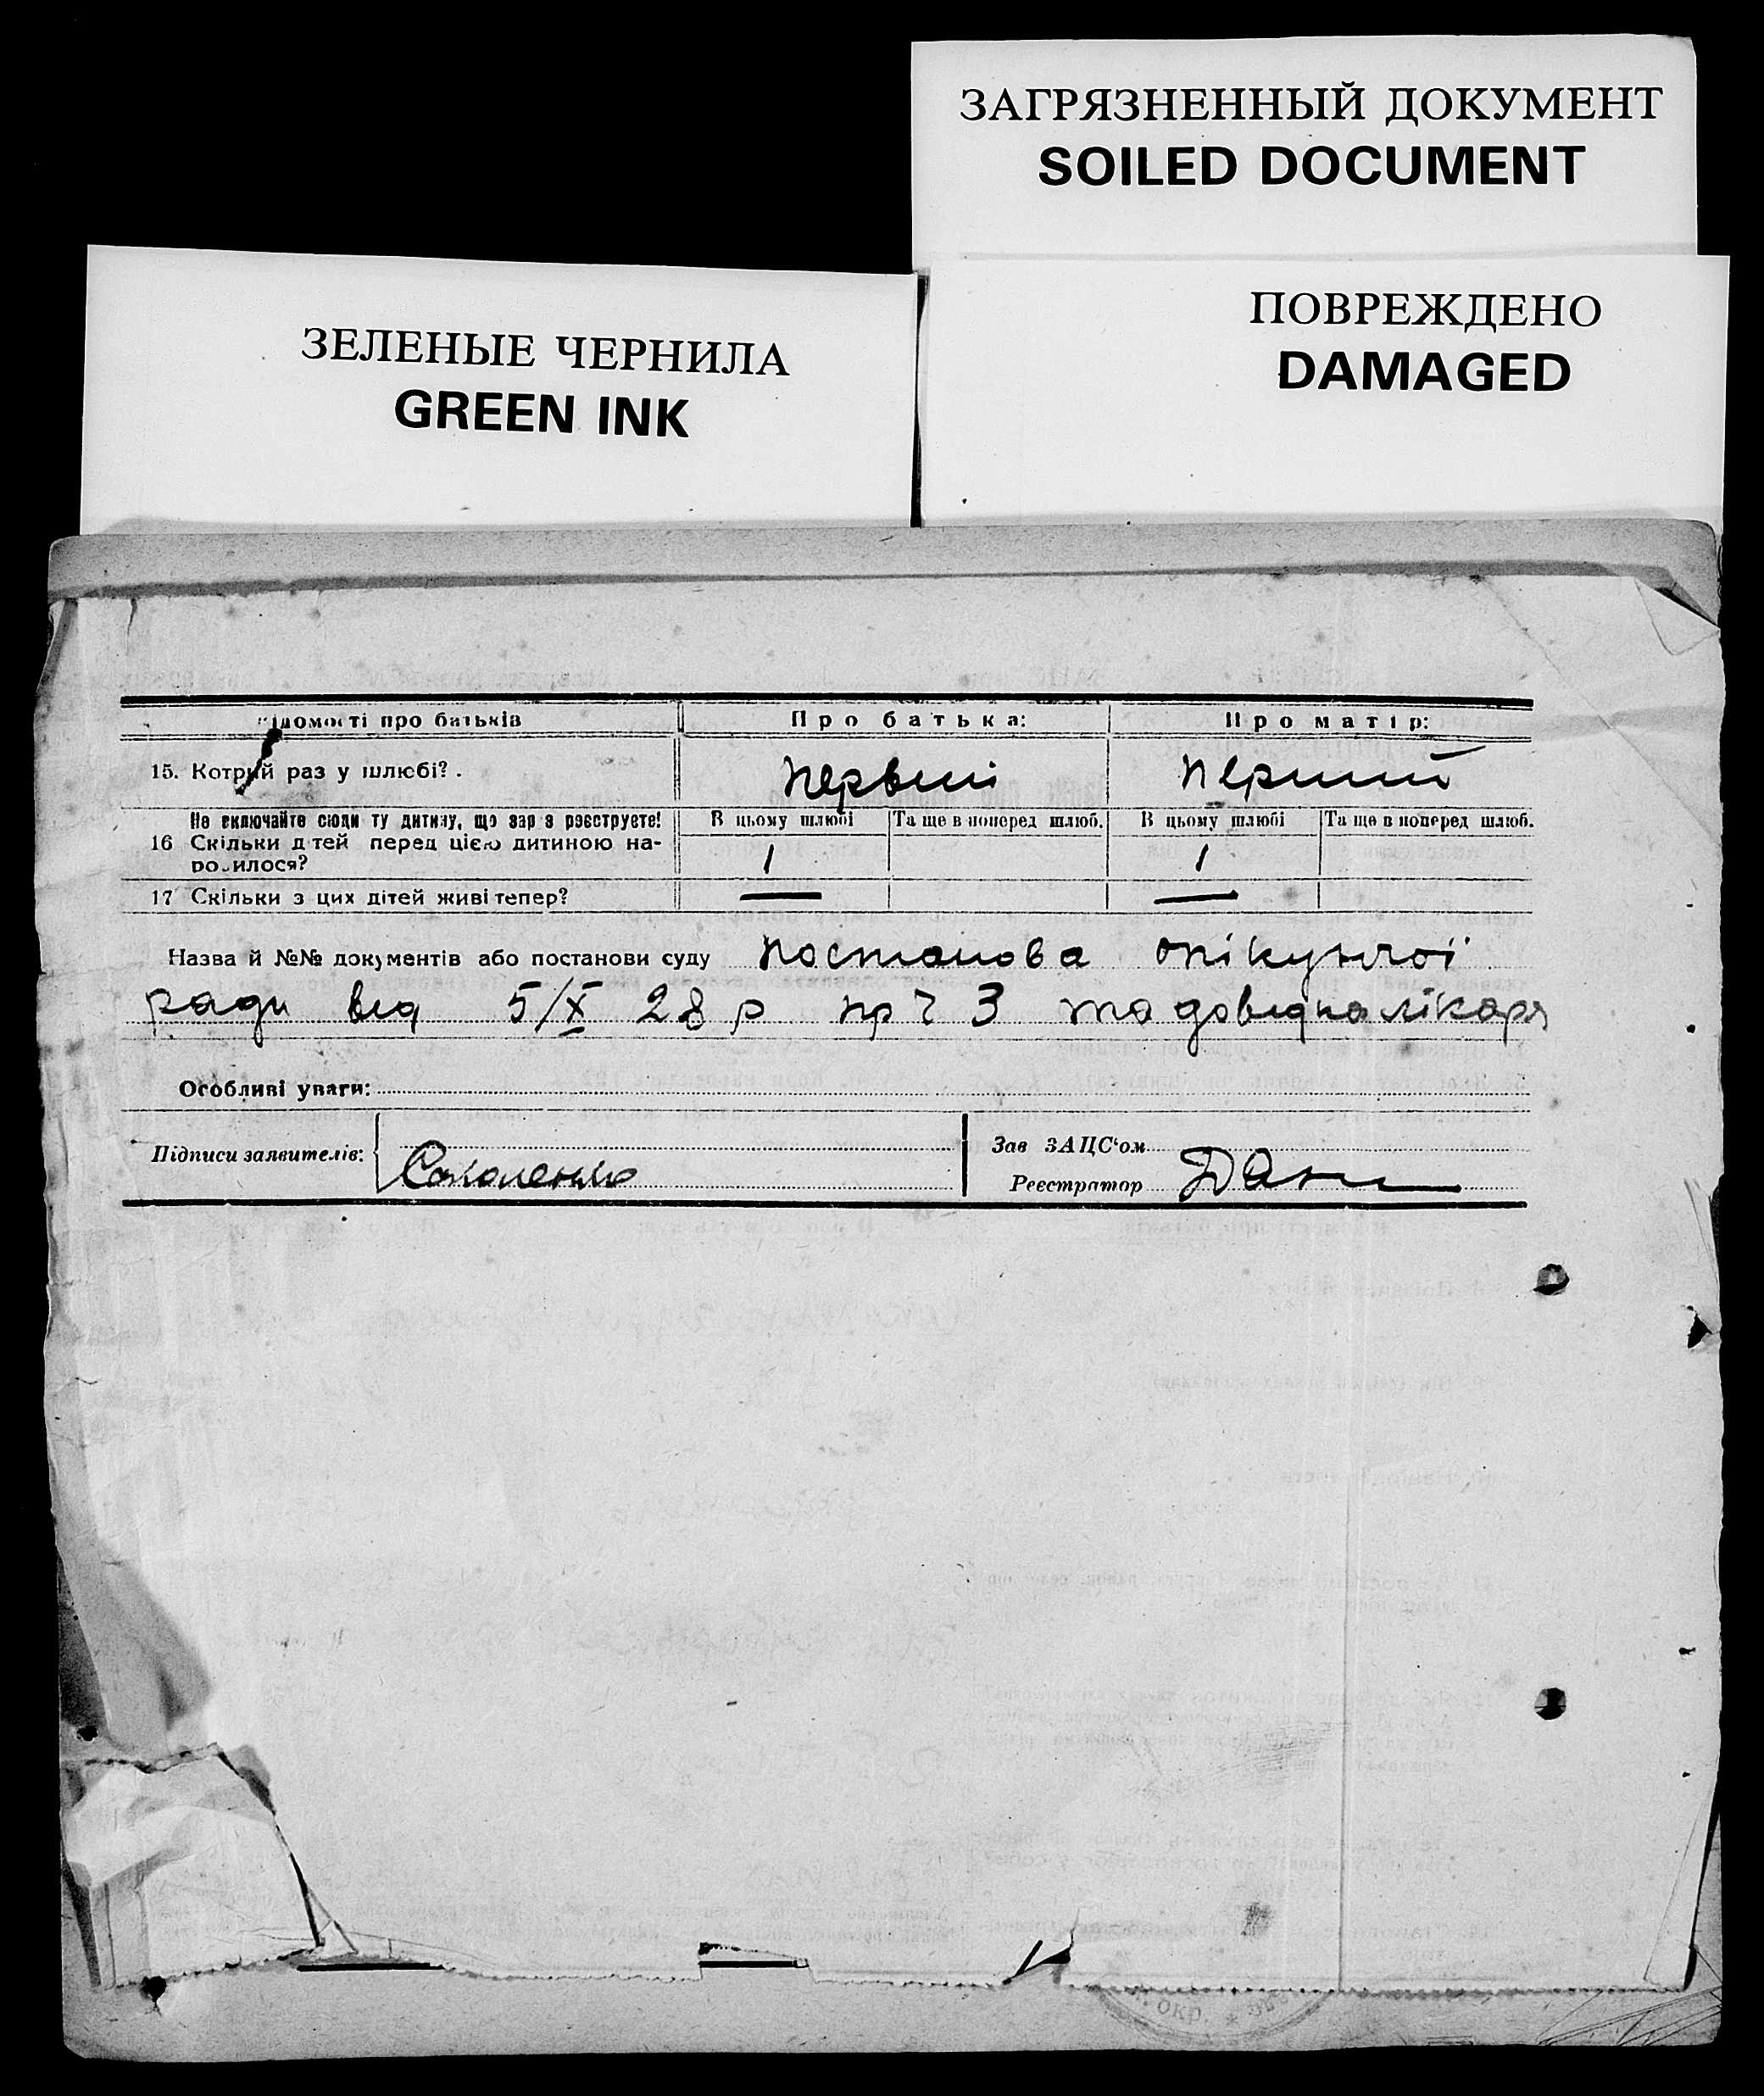 ЗАГРЯЗНЕННЫЙ ДОКУМЕНТ
SOILED DOCUMENT
ПОВРЕЖДЕНО
DAMAGED
ЗЕЛЕНЫЕ ЧЕРНИЛА
GREEN INK
ідомості про батьків Про батька: Про матір:
15. Котрий раз у шлюбі? . первий перший
Не включайте сюди ту дитину, що зараз реєструєте! В цьому шлюбі Та ще в поперед шлюб. В цьому шлюбі Та ще в поперед шлюб.
16 Скільки дітей перед цією дитиною на-
родилося? 1 1
17 Скільки з цих дітей живі тепер? — —
Назва й №№ документів або постанови суду постанова опікунчої
ради від 5/X 28 р пр ч 3 та довідка лікаря
Особливі уваги:
Підписи заявителів: Зав ЗАЦС'ом
Реєстратор
ОКР. *